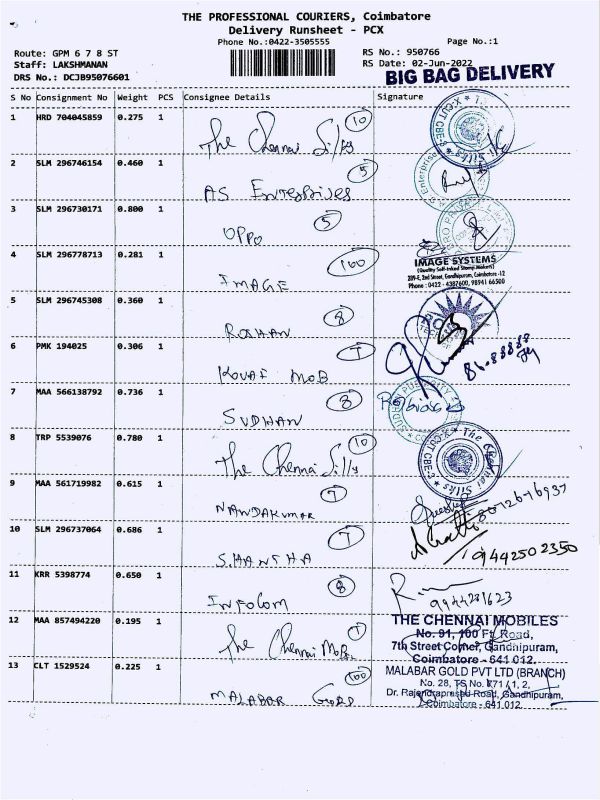 THE PROFESSIONAL COURIERS, Coimbatore
Delivery Runsheet - PCX
Phone No.:0422-3505555
Page No.:1
Route: GPM 6 7 8 ST
RS No.: 950766
Staff: LAKSHMANAN
RS Date: 02-Jun-2022
DRS No.: DCJB95076601
BIG BAG DELIVERY
S No Consignment No Weight PCS Consignee Details Signature
1 HRD 704045859 0.275 1 The Chennai Silks 10
2 SLM 296746154 0.460 1 AS Enterprises 5
3 SLM 296730171 0.800 1 OPPO 5
4 SLM 296778713 0.281 1 IMAGE 100
IMAGE SYSTEMS
(Quality Self-Inked Stamp Makers)
209-E, 2nd Street, Gandhipuram, Coimbatore -12
Phone : 0422 - 4387600, 98941 66500
5 SLM 296745308 0.360 1 ROSHAN 8
6 PMK 194025 0.306 1 KOVAI MOB 7
7 MAA 566138792 0.736 1 SUDHAN 8
8 TRP 5539076 0.780 1 The Chennai Silks 10
The Chennai Silks
9 MAA 561719982 0.615 1 NANDAKUMAR 7
10 SLM 296737064 0.686 1 SHANTHA 7
99442502350
11 KRR 5398774 0.650 1 INFOCOM 8
9944281623
12 MAA 857494220 0.195 1 The Chennai Mob. 7
THE CHENNAI MOBILES
No. 91, 100 Ft. Road,
7th Street Corner, Gandhipuram,
Coimbatore - 641 012.
13 CLT 1529524 0.225 1 MALABAR GOLD 100
MALABAR GOLD PVT LTD (BRANCH)
No. 28, TS No. 771 / 1, 2,
Dr. Rajendraprasad Road, Gandhipuram,
Coimbatore - 641 012.